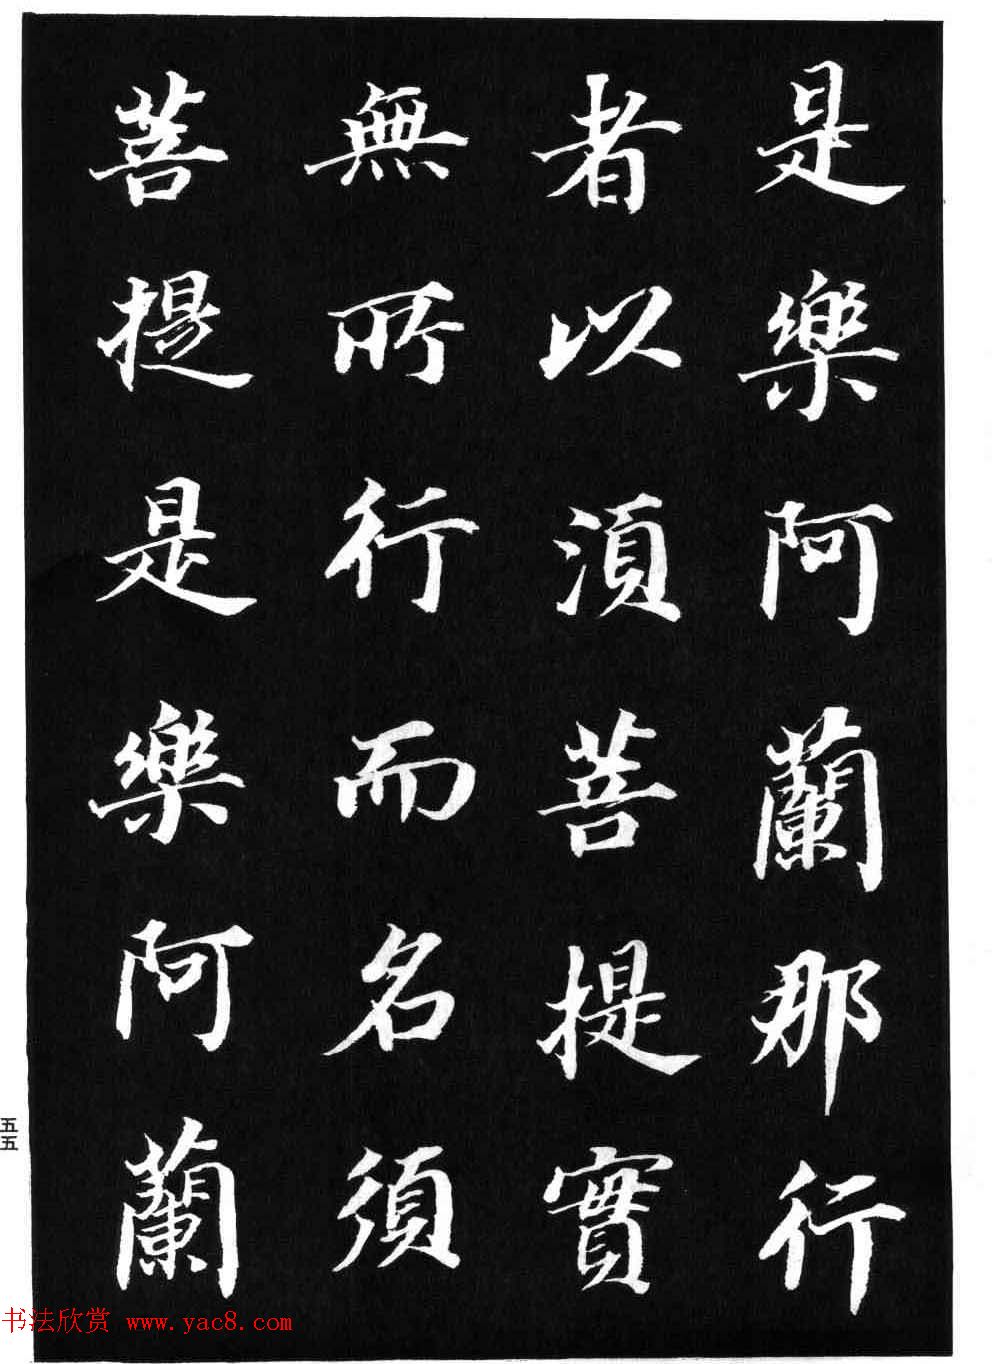 是樂阿蘭那行
者以湏菩提實
無所行而名須
菩提是樂阿蘭
五五
书法欣赏 www.yac8.com